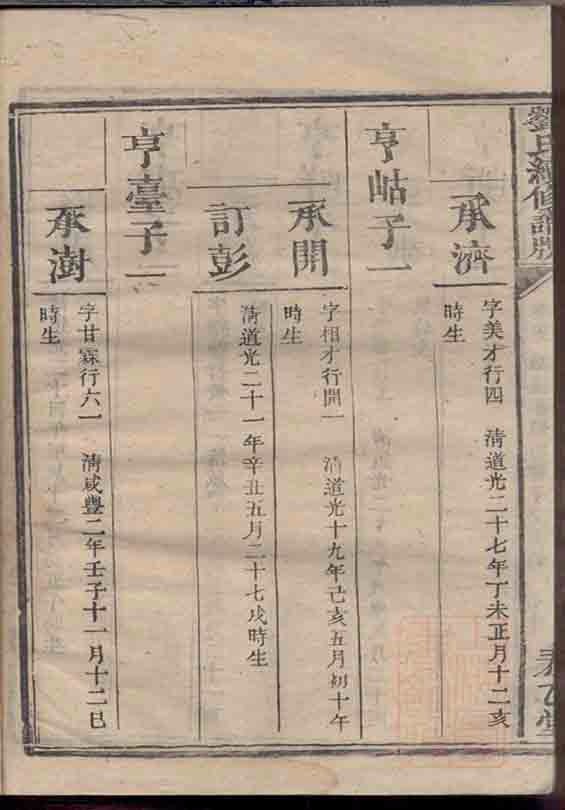 劉氏續修譜牒
承濟
字美才行四　清道光二十七年丁未正月十二亥
時生
亨岵子一
承開
字相才行開一　清道光十九年己亥五月初十午
時生
訂彭
清道光二十一年辛丑五月二十七戌時生
亨臺子一
承澍
字甘霖行六一　清咸豐二年壬子十一月十二巳
時生